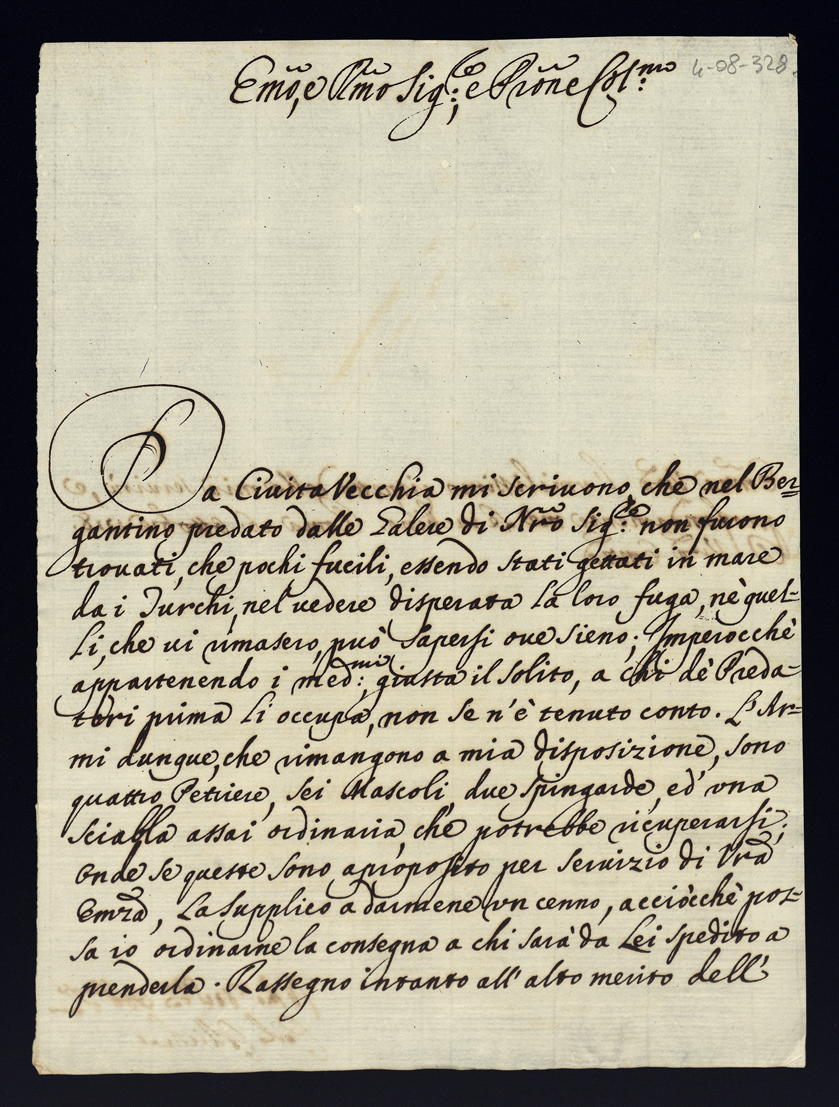 Emõ, e Rm̃o Sig:re, e Prõne Col:mo
4-08-328.
Da CivitaVecchia mi scrivono, che nel Ber=
gantino predato dalle Galere di Nrõ Sig:re non furono
trovati, che pochi fucili, essendo stati gettati in mare
da i Turchi, nel vedere disperata la loro fuga, nè quel-
li, che vi rimasero, può sapersi ove sieno; Imperocchè
appartenendo i med:mi giusta il solito, a chi dè Preda-
tori prima li occupa, non se n'è tenuto conto. L'Ar=
mi dunque, che rimangono a mia disposizione, sono
quattro Petriere, sei Mascoli, due spingarde, ed' una
sciabla assai ordinaria, che potrebbe ricuperarsi;
onde se queste sono apròposito per servizio di Vrã
Emzã, La supplico a darmene un cenno, acciòcchè pos-
sa io ordinarne la consegna a chi sarà da Lei spedito a
prenderla. Rassegno intanto all' alto merito dell'